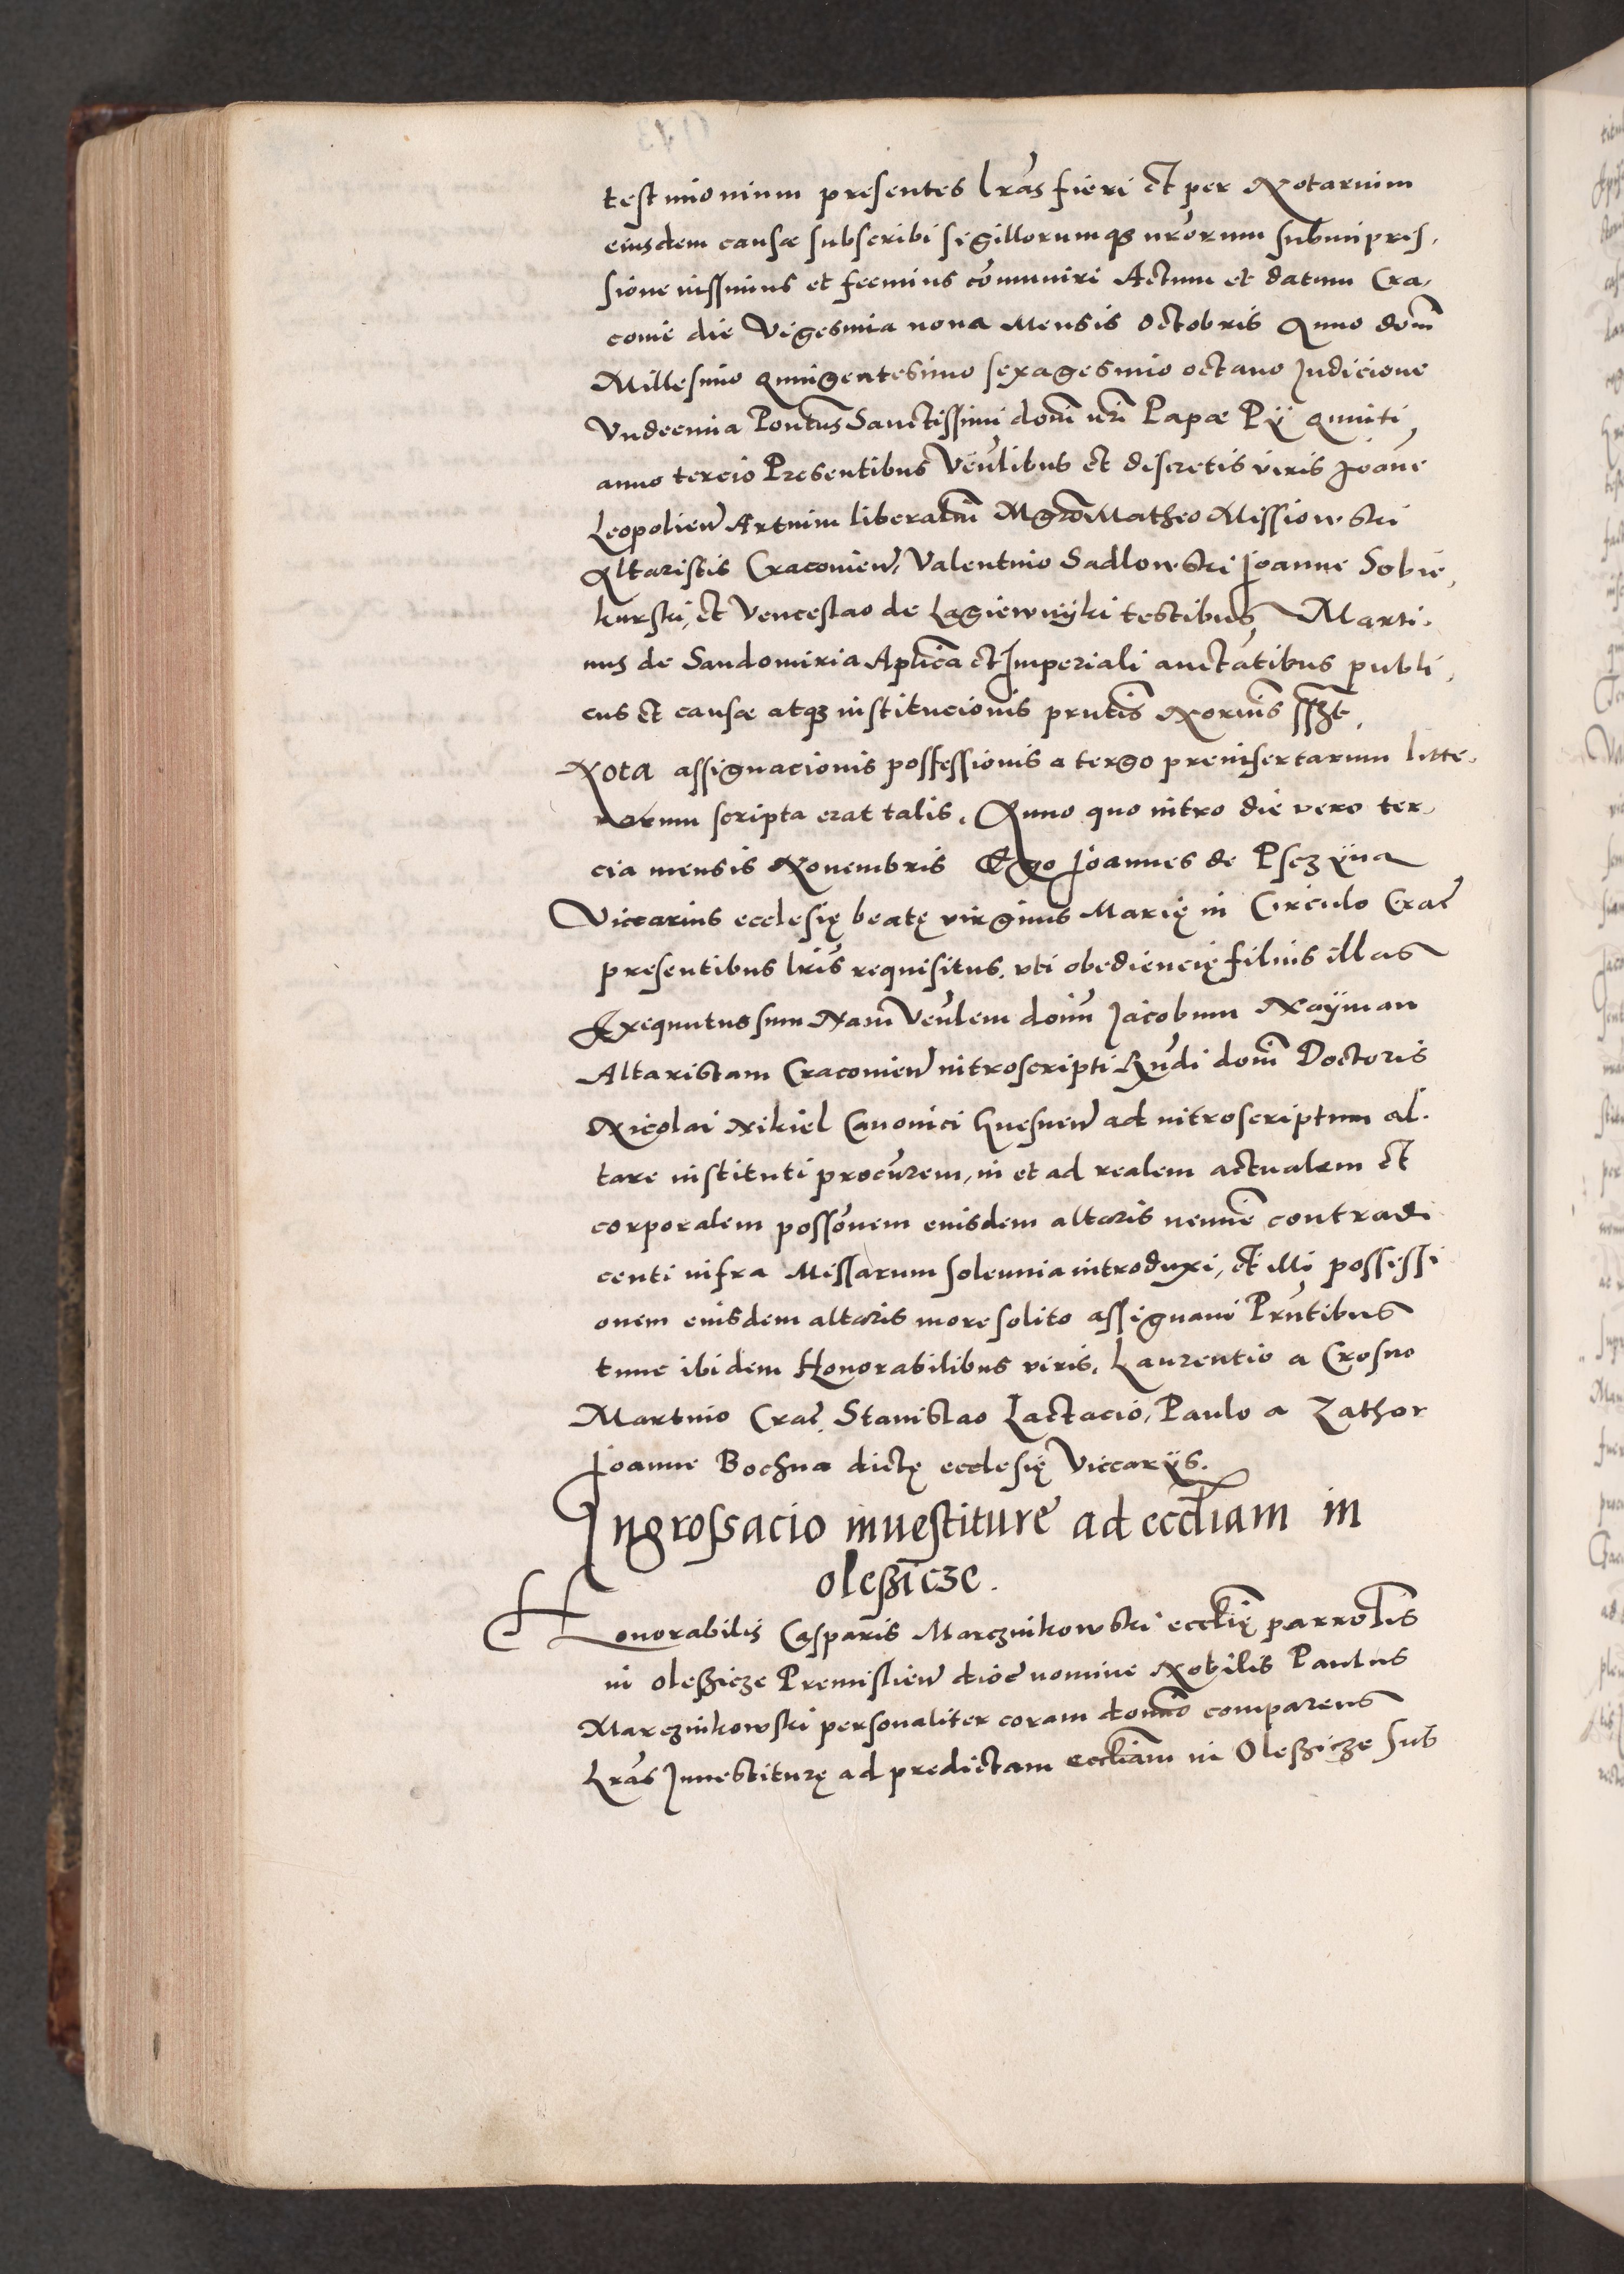 testimonium presentes lras fieri et per Notarium
eiusdem causæ subscribi sigillorumqȝ nrorum subimpres,
sione iussimus et fecimus cōmuniri Actum et datum Cra,
couie die Vigesima nona Mensis Octobris Anno dom̄
Millesimo quingentesimo sexagesimo octauo Indicione
Vndecima Pontus Sanctissimi domi nri Papæ Pÿ quinti
anno tercio Presentibus Venlibus et discretis viris Joāne
Leopolien Artium liberaliū Mgro Matheo Missiowski
Altaristis Cracouien, Valentino Sadlowski Joanne Sobie,
kurski, et Venceslao de Lagiewnÿki testibus Marti.
nus de Sandomiria Aplica et Imperiali auctātibus publi,
cus et causæ atqȝ institucionis prntis Norius sszt.
Nota assignacionis possessionis a tergo preinsertarum litte.
rarum scripta erat talis. Anno quo intro die vero ter,
cia mensis Nouembris Ego Joannes de Psczÿna
Viccarius ecclesię beatę virginis Marię in Circulo Crac
presentibus lris requisitus, vti obediencię filius illas
Exequutus sum Nam Venlem domū Jacobum Naÿman
Altaristam Cracouien introscripti Rndi domi Doctoris
Nicolai Nikiel Canonici Gnesnen ad introscriptum al.
tare instituti procurem, in et ad realem actualem et
corporalem possōnem eiusdem altaris nemīe contradi
centi infra Missarum solennia introduxi, et illi possessi
onem eiusdem altaris more solito assignaui Prntibus
tunc ibidem Honorabilibus viris, Laurentio a Crosno
Martino Crac, Stanislao Lactacio, Paulo a Zathor
Joanne Bochna dictę ecclesię Viccarÿs.
Ingrossacio inuestiture ad eccliam in
oleßicze.
Honorabilis Casparis Marcznikowski ecclię parrolis
in oleßicze Premislien dioc nomine Nobilis Paulus
Marcznikowski personaliter coram domino comparens
Lras Inuestiturę ad predictam eccliam in Oleßicze sub